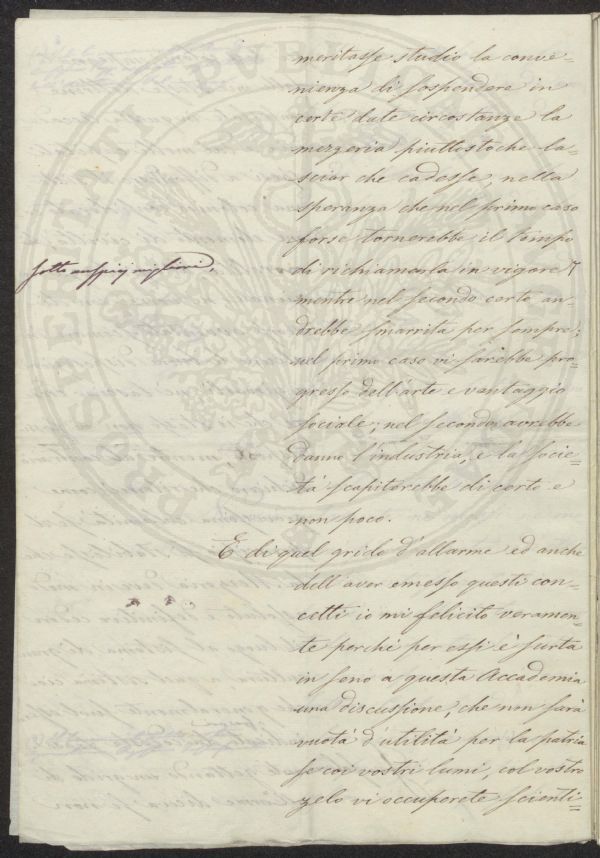 meritasse studio la conve=
nienza di sospendere in
certe date circostanze la
mezzeria piuttostoche la=
sciar che cadesse, nella
speranza che nel primo caso
forse tornerebbe il tempo
di richiamarla in vigore
sotto auspicj migliori,
mentre nel secondo certo an=
drebbe smarrita per sempre;
nel primo caso vi sarebbe pro=
gresso dell'arte e vantaggio
sociale; nel secondo avrebbe
danno l'industria, e la socie=
tà scapiterebbe di certo e
non poco.
E di quel grido d'allarme ed anche
dell'aver emesso questi con=
cetti io mi felicito veramen=
te perché per essi è surta
in seno a questa Accademia
una discussione, che non sarà
vuota d'utilità per la patria
se coi vostri lumi, col vostro
zelo vi occuperete scienti=
PROSPERITATI PVBLICAE